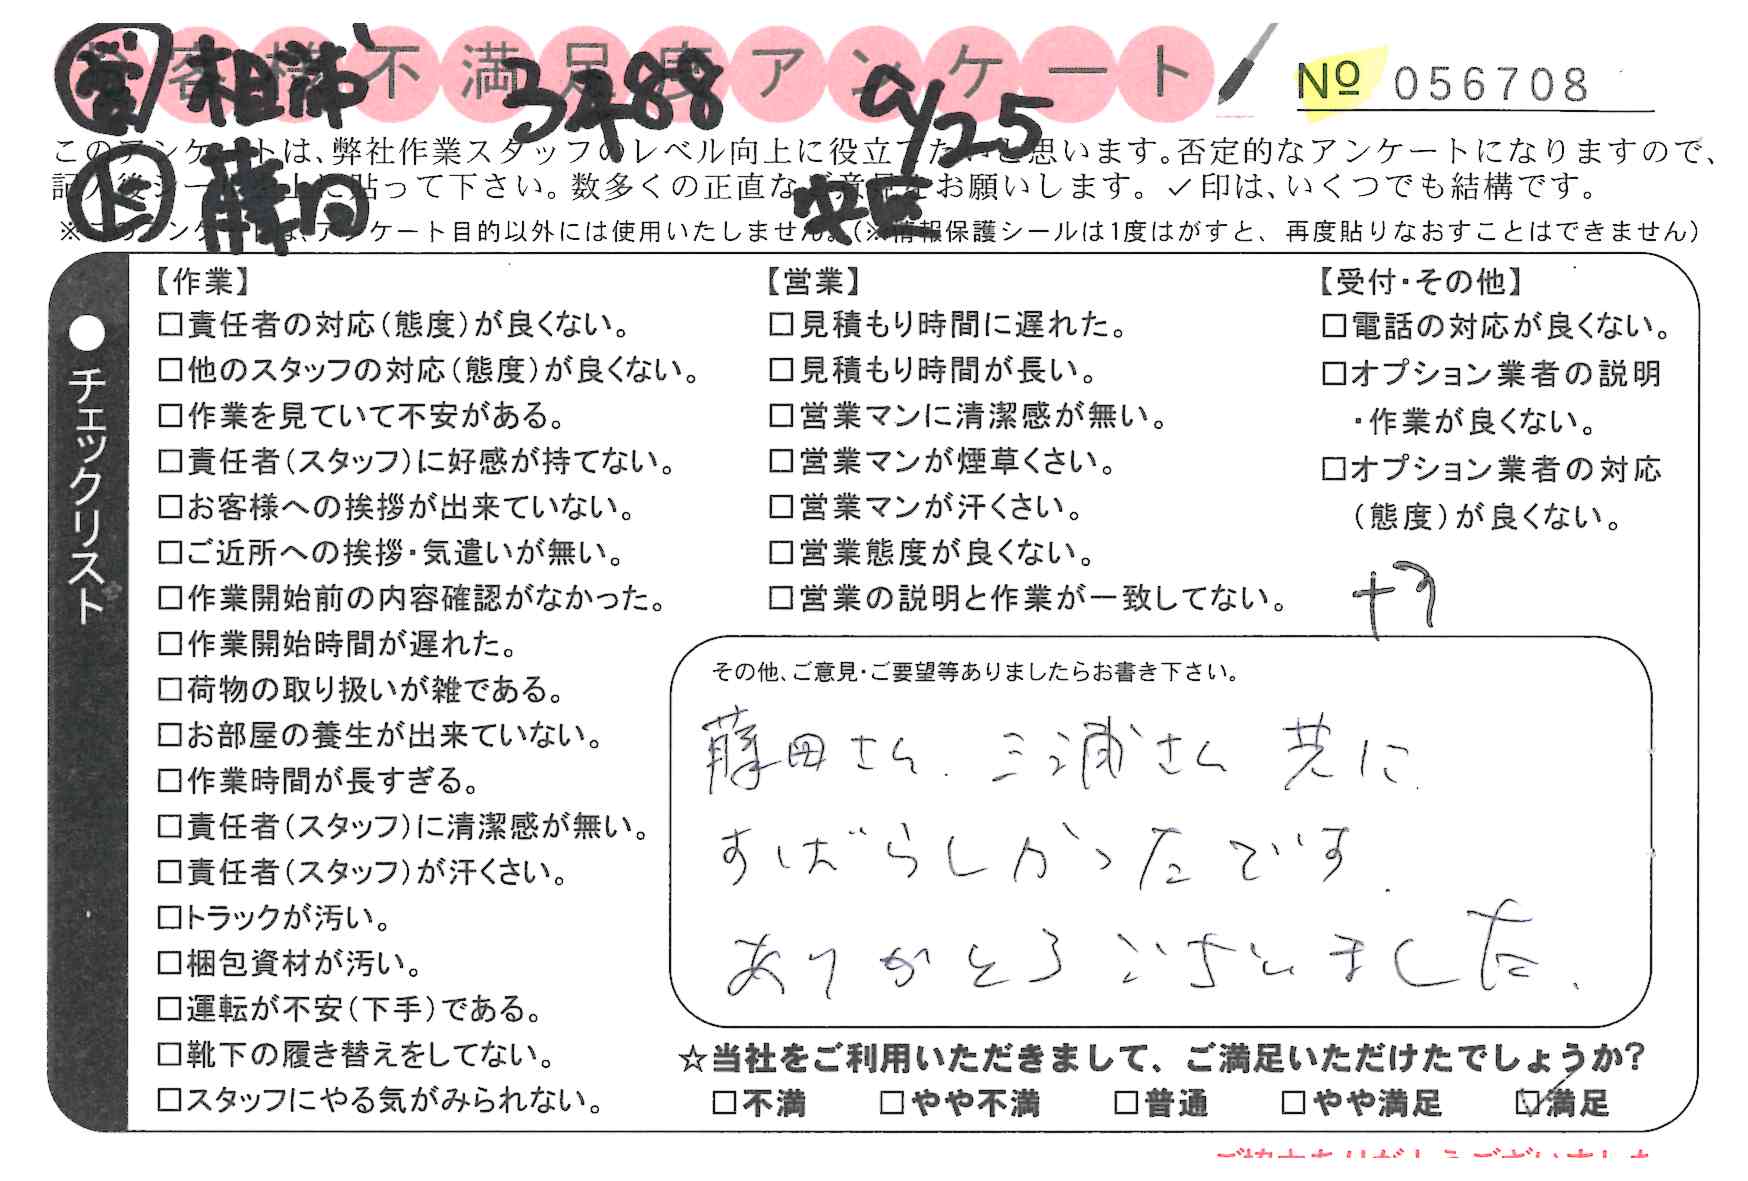 お客様不満足度アンケート
№ 056708
営 相沸 3488 9/25
このアンケートは、弊社作業スタッフのレベル向上に役立てたいと思います。否定的なアンケートになりますので、
記入後シールを上に貼って下さい。数多くの正直なご意見をお願いします。✓印は、いくつでも結構です。
藤田
※このアンケートは、アンケート目的以外には使用いたしません。(※情報保護シールは1度はがすと、再度貼りなおすことはできません)
●チェックリスト
【作業】
□責任者の対応(態度)が良くない。
□他のスタッフの対応(態度)が良くない。
□作業を見ていて不安がある。
□責任者(スタッフ)に好感が持てない。
□お客様への挨拶が出来ていない。
□ご近所への挨拶・気遣いが無い。
□作業開始前の内容確認がなかった。
□作業開始時間が遅れた。
□荷物の取り扱いが雑である。
□お部屋の養生が出来ていない。
□作業時間が長すぎる。
□責任者(スタッフ)に清潔感が無い。
□責任者(スタッフ)が汗くさい。
□トラックが汚い。
□梱包資材が汚い。
□運転が不安(下手)である。
□靴下の履き替えをしてない。
□スタッフにやる気がみられない。
【営業】
□見積もり時間に遅れた。
□見積もり時間が長い。
□営業マンに清潔感が無い。
□営業マンが煙草くさい。
□営業マンが汗くさい。
□営業態度が良くない。
□営業の説明と作業が一致してない。
【受付・その他】
□電話の対応が良くない。
□オプション業者の説明
・作業が良くない。
□オプション業者の対応
(態度)が良くない。
その他、ご意見・ご要望等ありましたらお書き下さい。
藤田さん、三浦さん 共に
すばらしかったです.
ありがとうございました.
☆当社をご利用いただきまして、ご満足いただけたでしょうか?
□不満 □やや不満 □普通 □やや満足 ☑満足
ご協力ありがとうございました